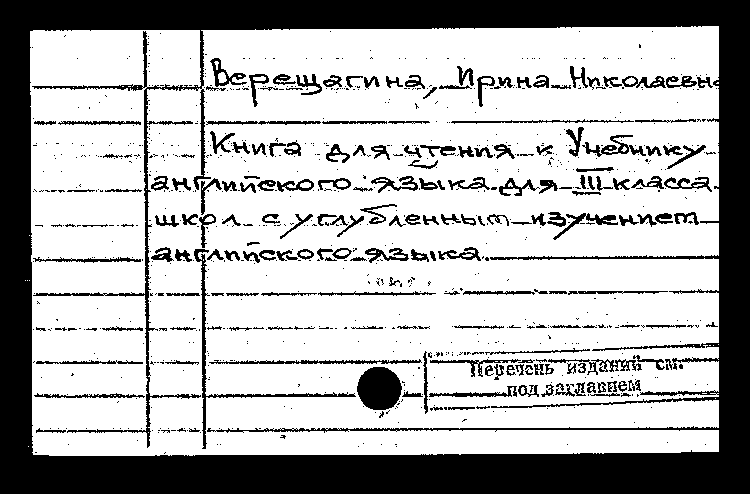 Верещагина, Ирина Николаевна
Книга для чтения к Учебнику
английского языка для III класса
школ с углубленным изучением
английского языка.
Перечень изданий см.
под заглавием